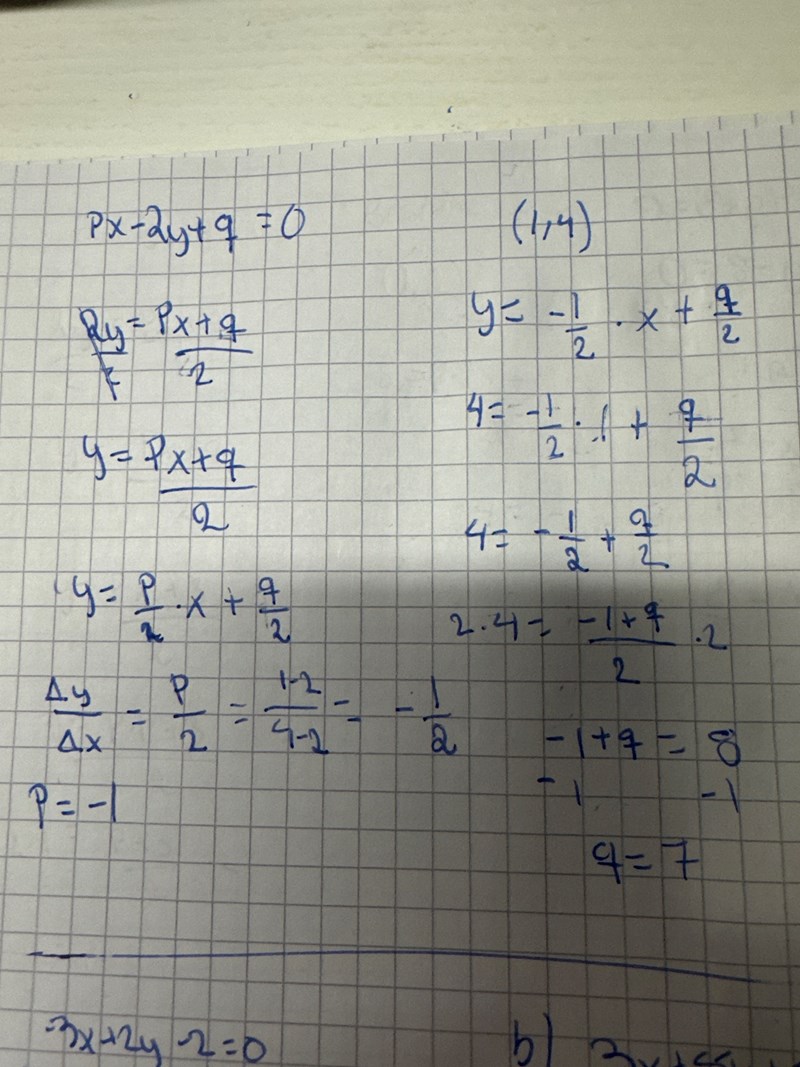 px-2y+q=0
2y/2=px+q/2
y=px+q/2
y=p/2·x+q/2
Δy/Δx=p/2=1-2/4-2=-1/2
p=-1
(1,4)
y=-1/2·x+q/2
4=-1/2·1+q/2
4=-1/2+q/2
2·4=-1+q/2·2
-1+q=8
-1 -1
q=7
3x+2y-2=0
b)